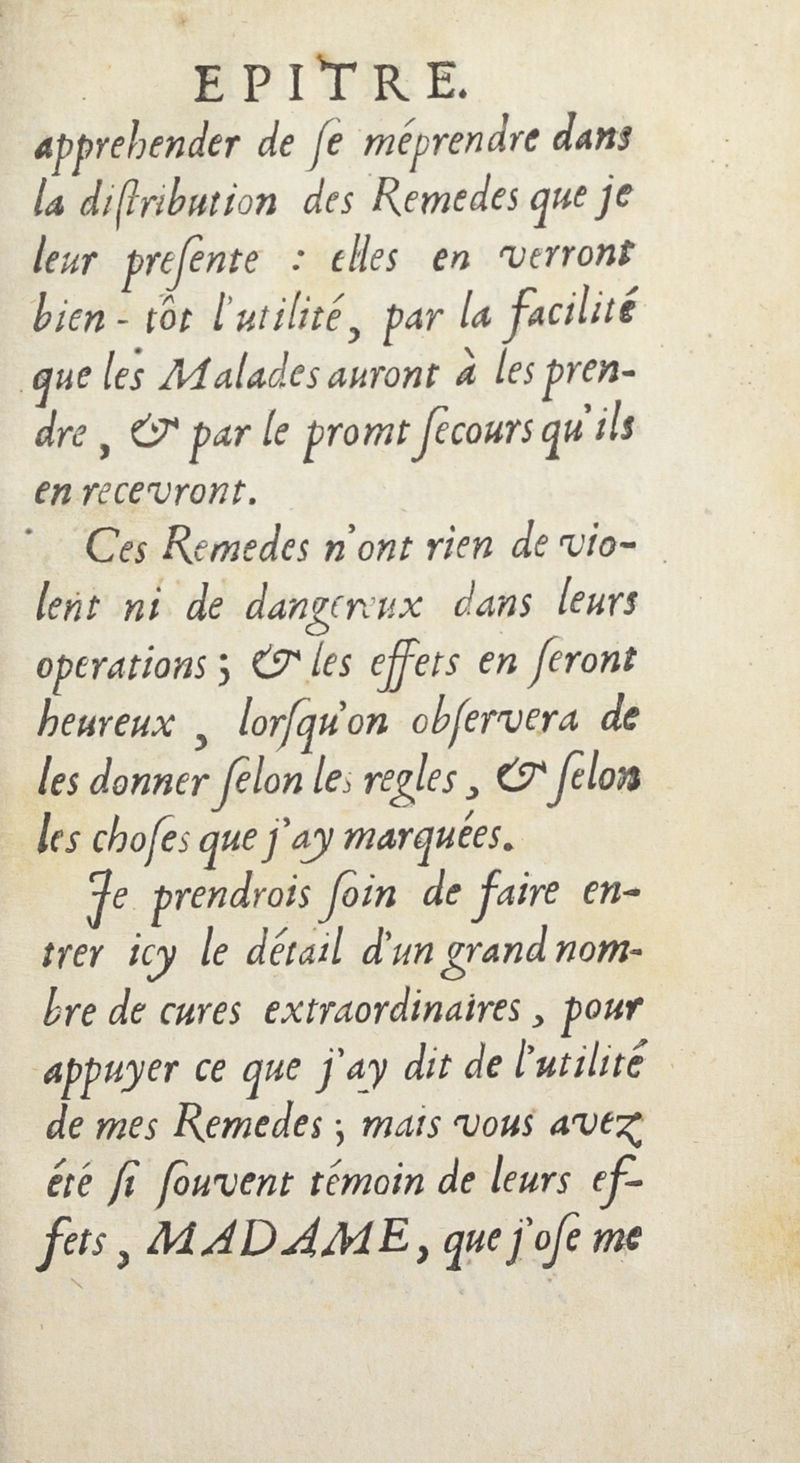 EPITRE.
apprehender de ſe méprendre dans
la diſtribution des Remedes que je
leur preſente : elles en verront
bien-tôt l'utilité, par la facilité
que les Malades auront à les pren-
dre, & par le promt ſecours qu'ils
en recevront.
Ces Remedes n'ont rien de vio-
lent ni de dangereux dans leurs
operations ; & les effets en ſeront
heureux, lorſqu'on obſervera de
les donner ſelon les regles, & ſelon
les choſes que j'ay marquées.
Je prendrois ſoin de faire en-
trer icy le détail d'un grand nom-
bre de cures extraordinaires, pour
appuyer ce que j'ay dit de l'utilité
de mes Remedes ; mais vous avez
été ſi ſouvent témoin de leurs ef-
fets, MADAME, que j'oſe me